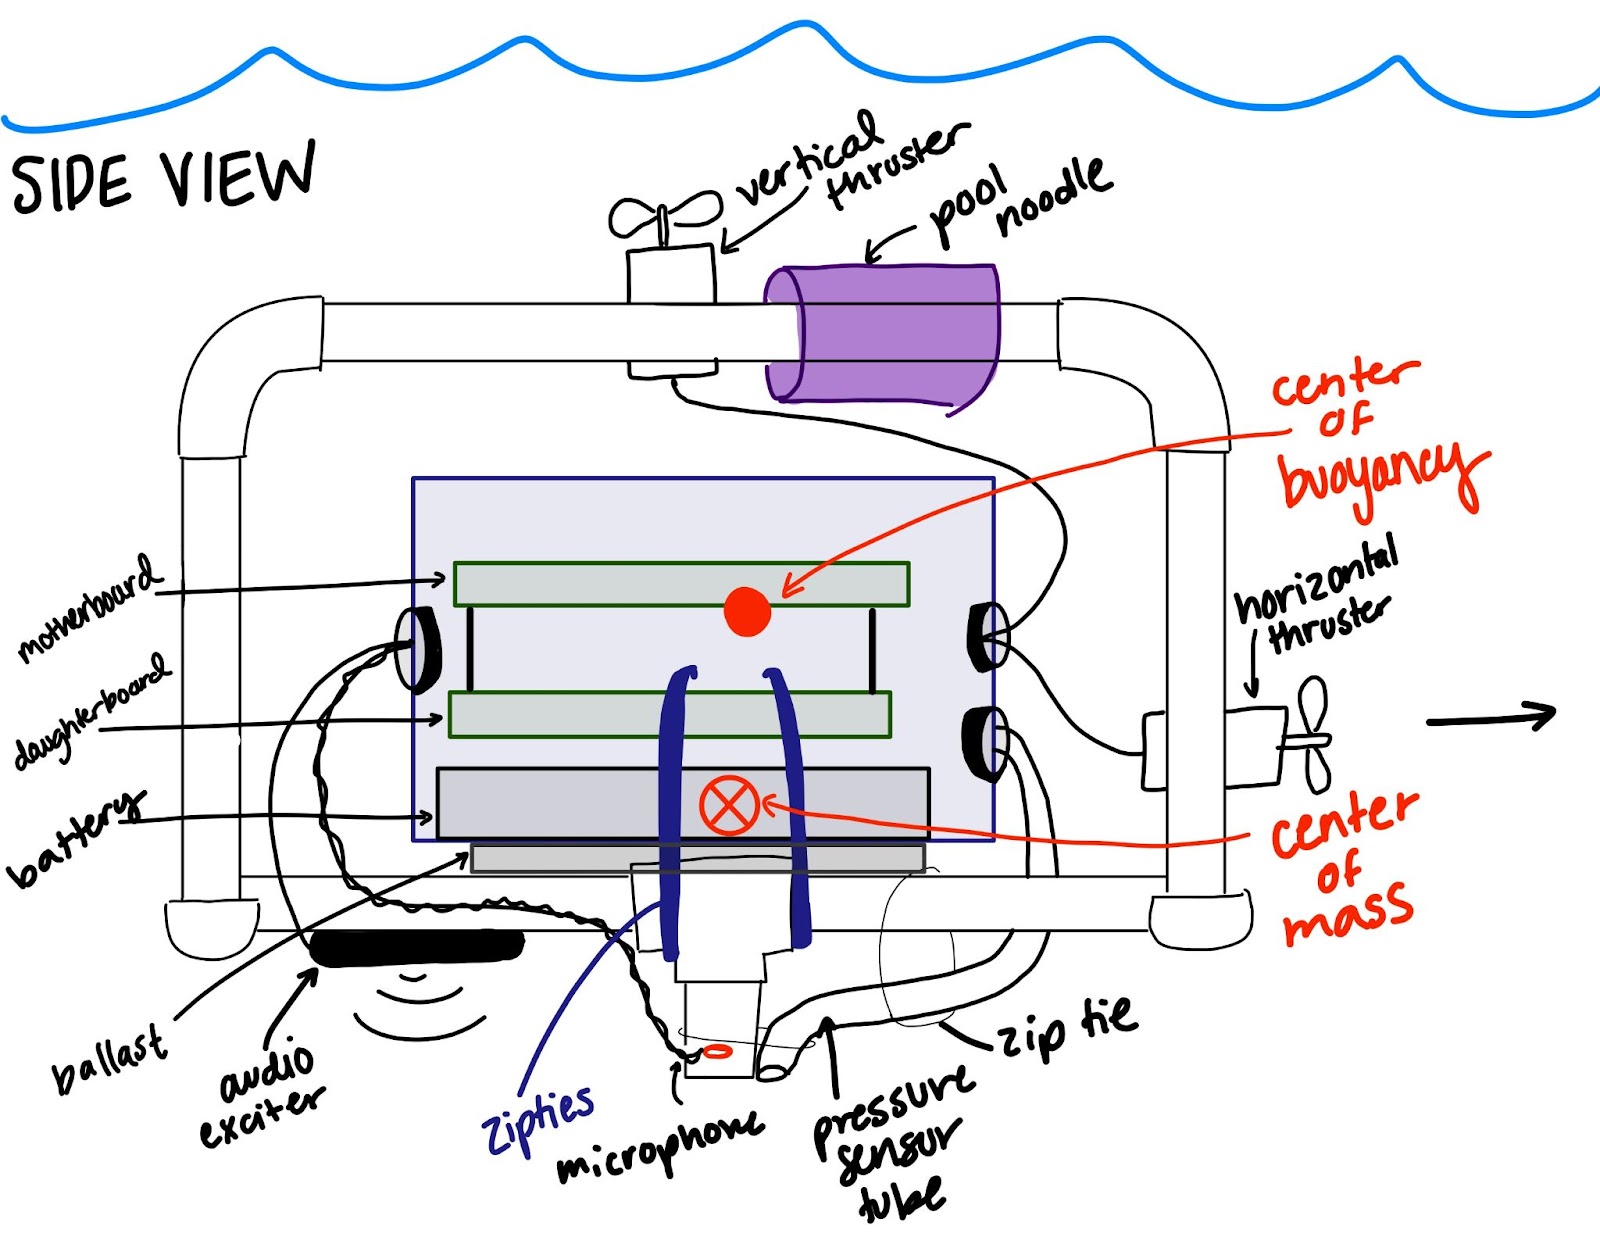 SIDE VIEW
vertical
thruster
pool
noodle
center
of
buoyancy
motherboard
horizontal
thruster
daughterboard
battery
center
of
mass
ballast
audio
exciter
zipties
microphone
pressure
sensor
tube
zip tie